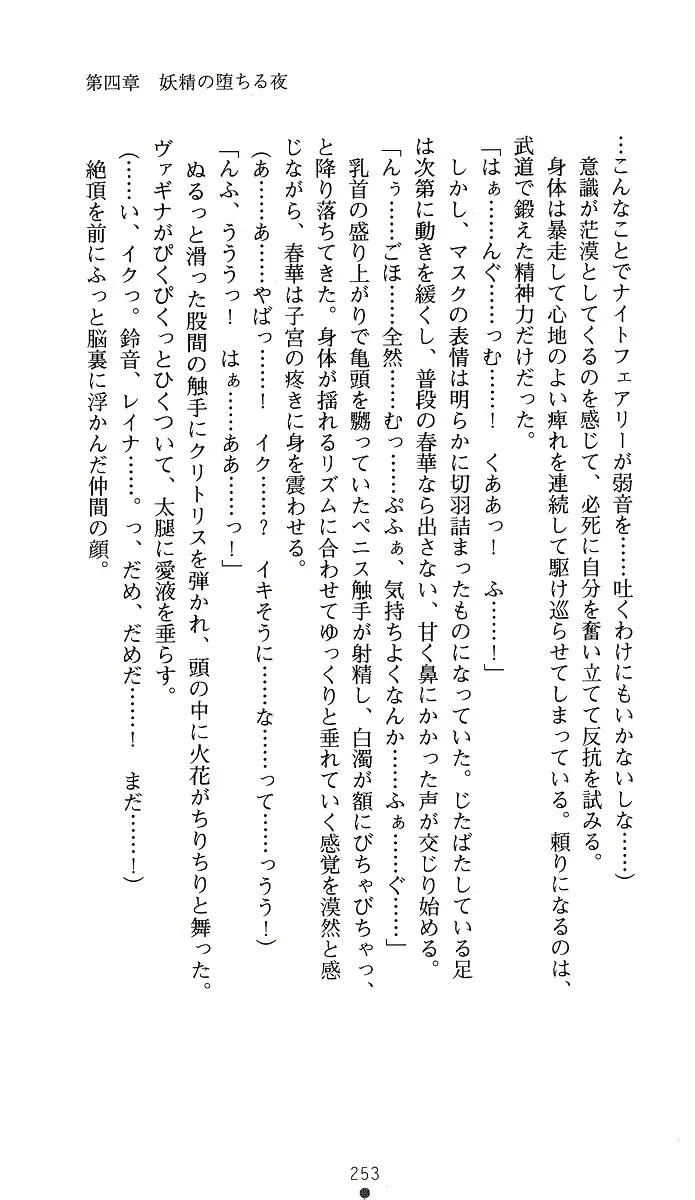 第四章　妖精の堕ちる夜
…こんなことでナイトフェアリーが弱音を……吐くわけにもいかないしな……)
意識が茫漠としてくるのを感じて、必死に自分を奮い立てて反抗を試みる。
身体は暴走して心地のよい痺れを連続して駆け巡らせてしまっている。頼りになるのは、
武道で鍛えた精神力だけだった。
「はぁ……んぐ……っむ……！　くああっ！　ふ……！」
しかし、マスクの表情は明らかに切羽詰まったものになっていた。じたばたしている足
は次第に動きを緩くし、普段の春華なら出さない、甘く鼻にかかった声が交じり始める。
「んぅ……ごほ……全然……むっ……ぷふぁ、気持ちよくなんか……ふぁ……ぐ……」
乳首の盛り上がりで亀頭を嬲っていたペニス触手が射精し、白濁が額にびちゃびちゃっ、
と降り落ちてきた。身体が揺れるリズムに合わせてゆっくりと垂れていく感覚を漠然と感
じながら、春華は子宮の疼きに身を震わせる。
(あ……あ……やばっ……！　イク……？　イキそうに……な……って……っうう！)
「んふ、うううっ！　はぁ……ああ……っ！」
ぬるっと滑った股間の触手にクリトリスを弾かれ、頭の中に火花がちりちりと舞った。
ヴァギナがぴくぴくっとひくついて、太腿に愛液を垂らす。
(……い、イクっ。鈴音、レイナ……。っ、だめ、だめだ……！　まだ……！)
絶頂を前にふっと脳裏に浮かんだ仲間の顔。
253